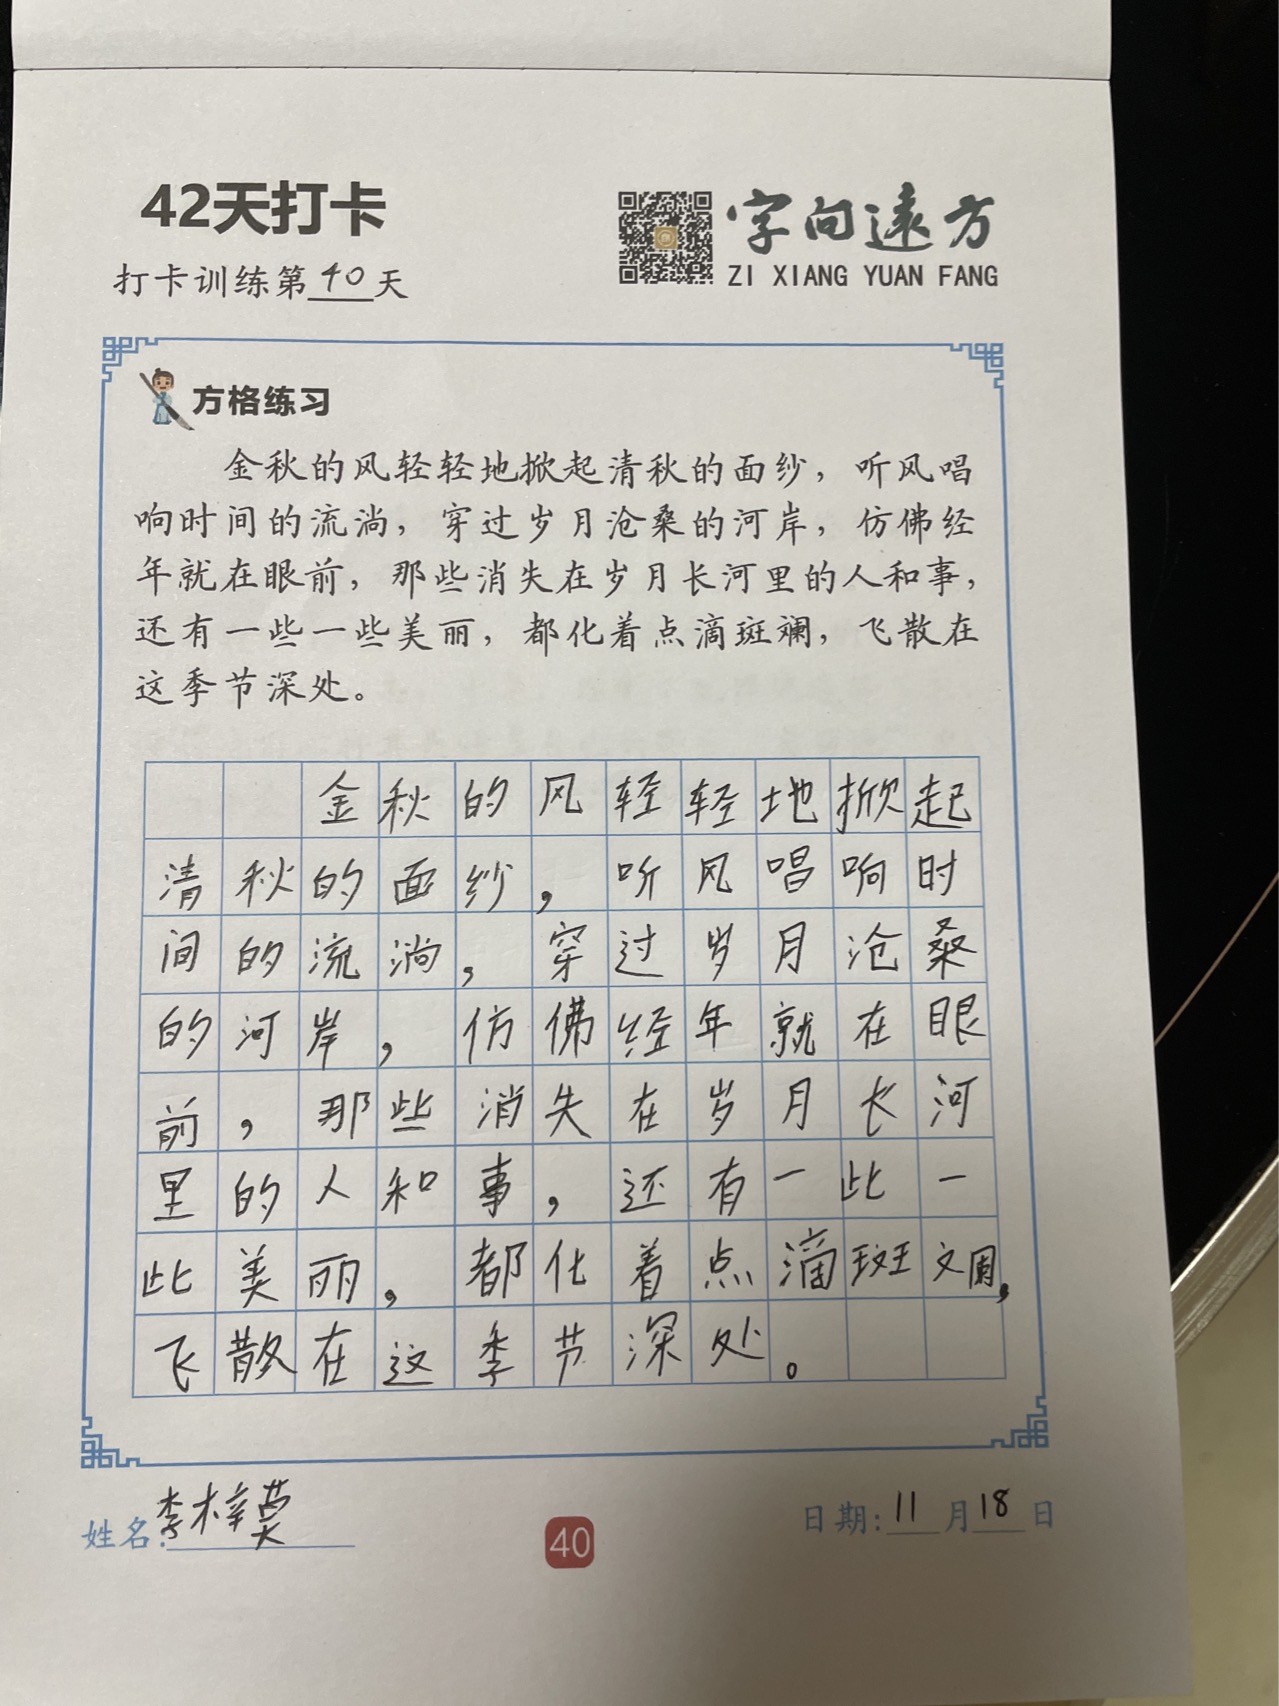 42天打卡
打卡训练第40天
字向遠方
ZI XIANG YUAN FANG
方格练习
金秋的风轻轻地掀起清秋的面纱，听风唱
响时间的流淌，穿过岁月沧桑的河岸，仿佛经
年就在眼前，那些消失在岁月长河里的人和事，
还有一些一些美丽，都化着点滴斑斓，飞散在
这季节深处。
金秋的风轻轻地掀起
清秋的面纱，听风唱响时
间的流淌，穿过岁月沧桑
的河岸，仿佛经年就在眼
前，那些消失在岁月长河
里的人和事，还有一此一
此美丽，都化着点滴斑斓，
飞散在这季节深处。
姓名:李梓
40
日期:11月18日